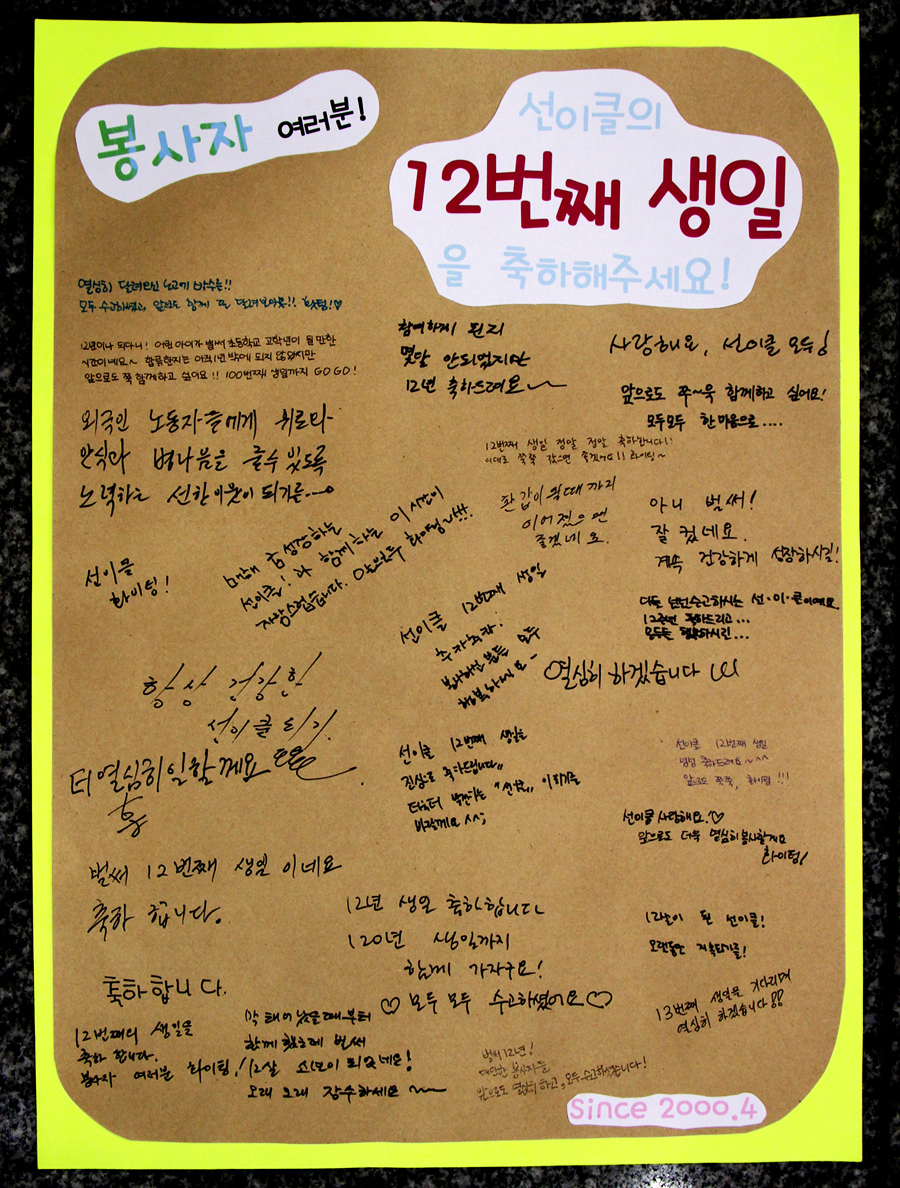 봉사자 여러분!
선이클의
12번째 생일
을 축하해주세요!
열심히 달려오신
모두 수고하셨고, 앞으로도 함께
12년이나 되다니! 어린 아이가 벌써 초등학교 고학년이 될 만한
시간이네요~ 합류한지는 아직 1년 밖에 되지 않았지만
앞으로도 쭉 함께하고 싶어요!! 100번째 생일까지 GO GO!
외국인 노동자들에게 위로와
안식과 병나음을 줄수 있도록
노력하는 선한이웃이 되기를
선이클
화이팅!
매해 꿈 성장하는
선이클!과 함께하는 이 시간이
자랑스럽습니다. 화이팅~!!!
항상 건강한
선이클 되기.
더 열심히 일할께요
벌써 12번째 생일이네요
축하 합니다.
축하합니다.
12번째의 생일을
축하 합니다.
봉사자 여러분 화이팅!
막 태어났을때부터
함께 했는데 벌써
12살 소년이 되었네요!
오래 오래 장수하세요~
참여하게 된지
몇달 안되었지만
12년 축하드려요~
사랑해요, 선이클 모두!
앞으로도 쭈~욱 함께하고 싶어요!
모두모두 한마음으로....
12번째 생일 정말 정말 축하합니다!!
이대로 쭉쭉 갔으면 좋겠어요!! 화이팅~
환갑이 될때 까지
이어졌으면
좋겠네요.
아니 벌써!
잘 컸네요.
계속 건강하게 성장하시길!
선·이·클이에요
12주년 축하드리고...
모두들
선이클 12번째 생일
추카추카.
봉사하신 분들 모두
행복하세요-
열심히 하겠습니다
선이클 12번째 생일을
진심으로 축하드립니다
더욱더 번창하는 "선이클" 이 되기를
바랄께요 ^^;
선이클 12번째 생일
축하드려요~^^
앞으로 쭉쭉, 화이팅!!!
선이클 사랑해요.♡
앞으로도 더욱 열심히 봉사할게요
화이팅!
12년 생일 축하합니다
120년 생일까지
함께 가자구요!
♡ 모두 모두 수고하셨어요 ♡
12살이 된 선이클!
오랫동안 지속되기를!
13번째 생일을 기다리며
열심히 하겠습니다!!
벌써 12년!
대단한 봉사자들
앞으로도 열심히 하고, 모두 수고하셨습니다!
Since 2000.4